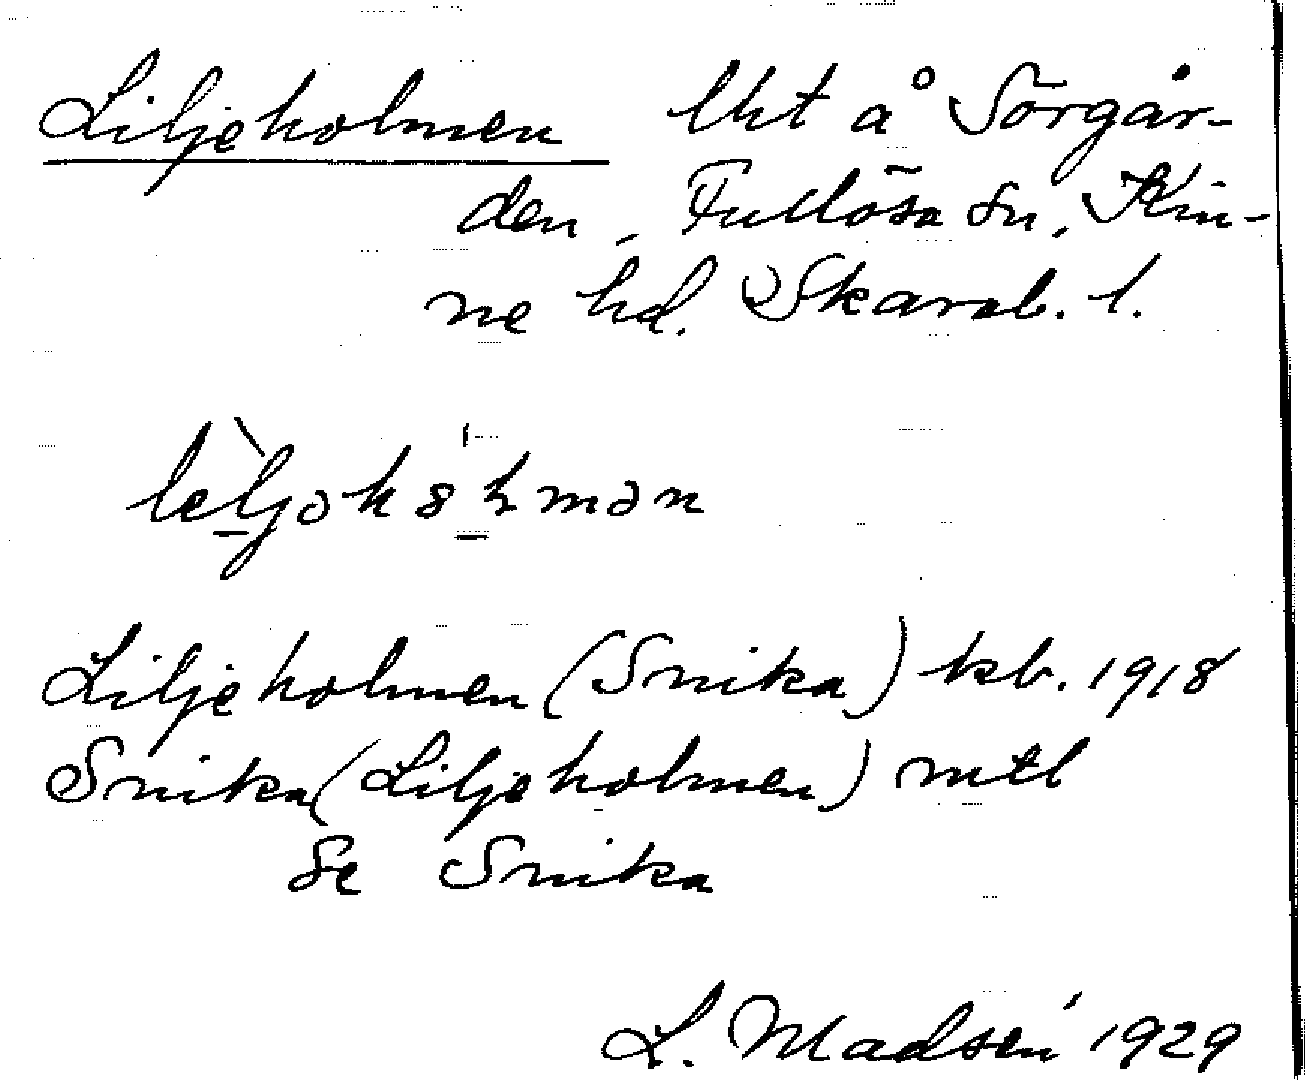 Liljeholmen lht å Sörgår-
den, Fullösa sn, Kin-
ne hd. Skarab. l.
Liljeholmen (Snika) kb. 1918
Snika (Liljeholmen) mtl
se Snika
L. Madsén 1929